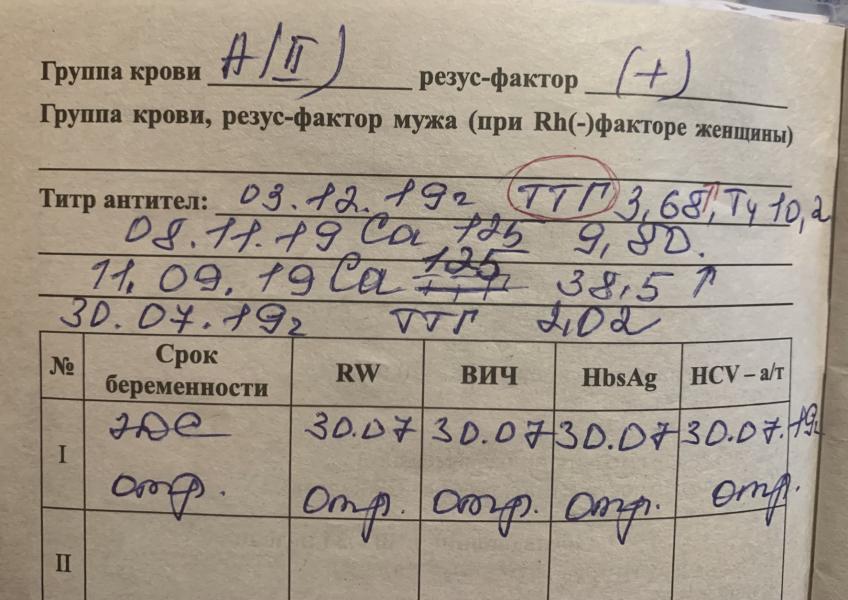 Группа крови A(II) резус-фактор (+)
Группа крови, резус-фактор мужа (при Rh(-)факторе женщины)
Титр антител: 03.12.19г ТТГ 3,68↑, Т4 10,2
08.11.19 Ca 125 9,80.
11.09.19 Ca 125 38,5 ↑
30.07.19г ТТГ 2,02
№ Срок беременности RW ВИЧ HbsAg HCV – а/т
I 30.07 30.07 30.07 30.07.19г
отр. отр. отр. отр. отр.
II